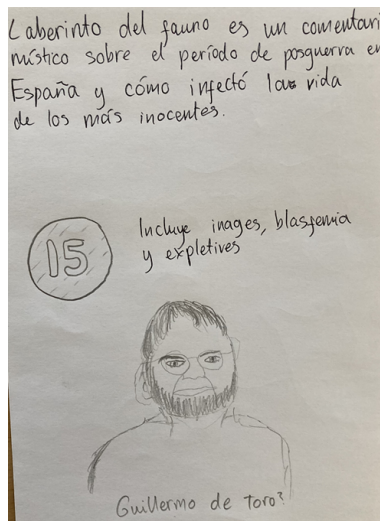 Laberinto del fauno es un comentari
místico sobre el período de posguerra en
España y cómo infectó la vida
de los más inocentes.
15
Incluye inages, blasfemia
y expletives
Guillermo de Toro?